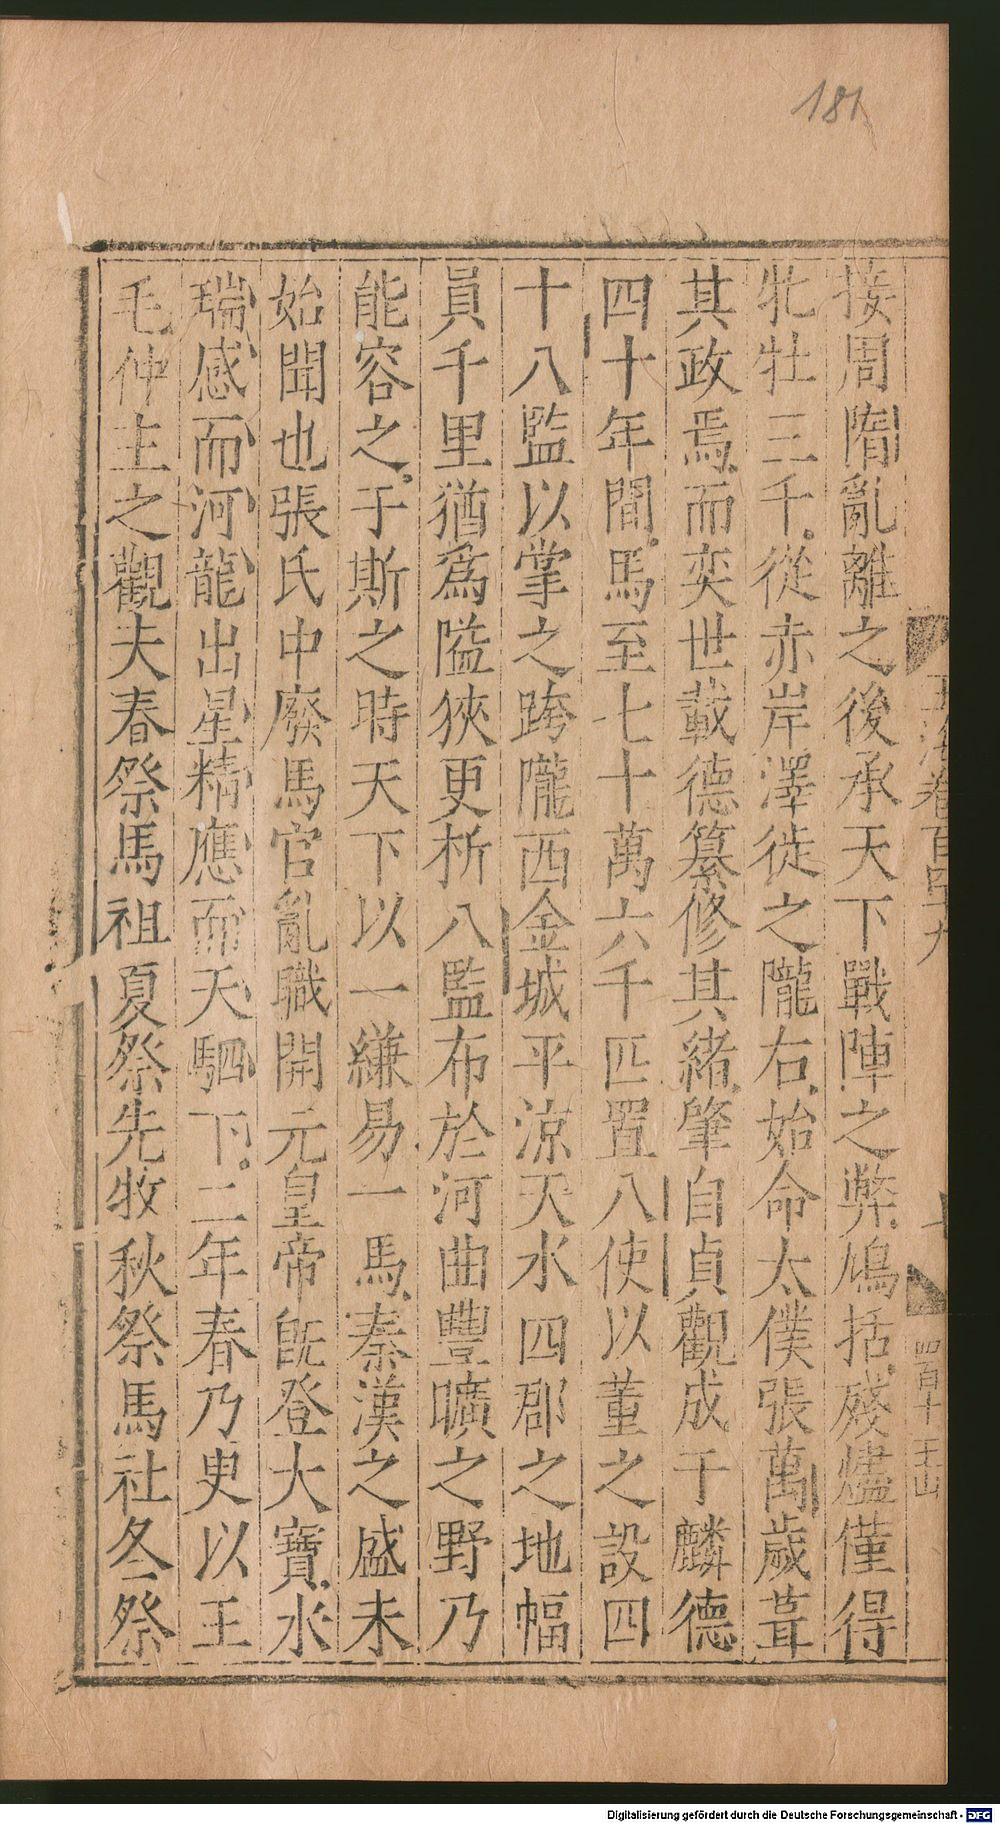 181
接周隋亂離之後承天下戰陣之弊鳩括殘燼僅得
牝牡三千從赤岸澤徙之隴右始命太僕張萬歲葺
其政焉而奕世載德纂修其緒肇自貞觀成于麟德
四十年間馬至七十萬六千匹置八使以董之設四
十八監以掌之跨隴西金城平涼天水四郡之地幅
員千里猶爲隘狹更析八監布於河曲豐曠之野乃
能容之于斯之時天下以一縑易一馬秦漢之盛未
始聞也張氏中廢馬官亂職開元皇帝旣登大寶水
瑞感而河龍出星精應而天駟下二年春乃叓以王
毛仲主之觀夫春祭馬祖夏祭先牧秋祭馬社冬祭
玉海卷百四九
四百十
王山
Digitalisierung gefördert durch die Deutsche Forschungsgemeinschaft - DFG